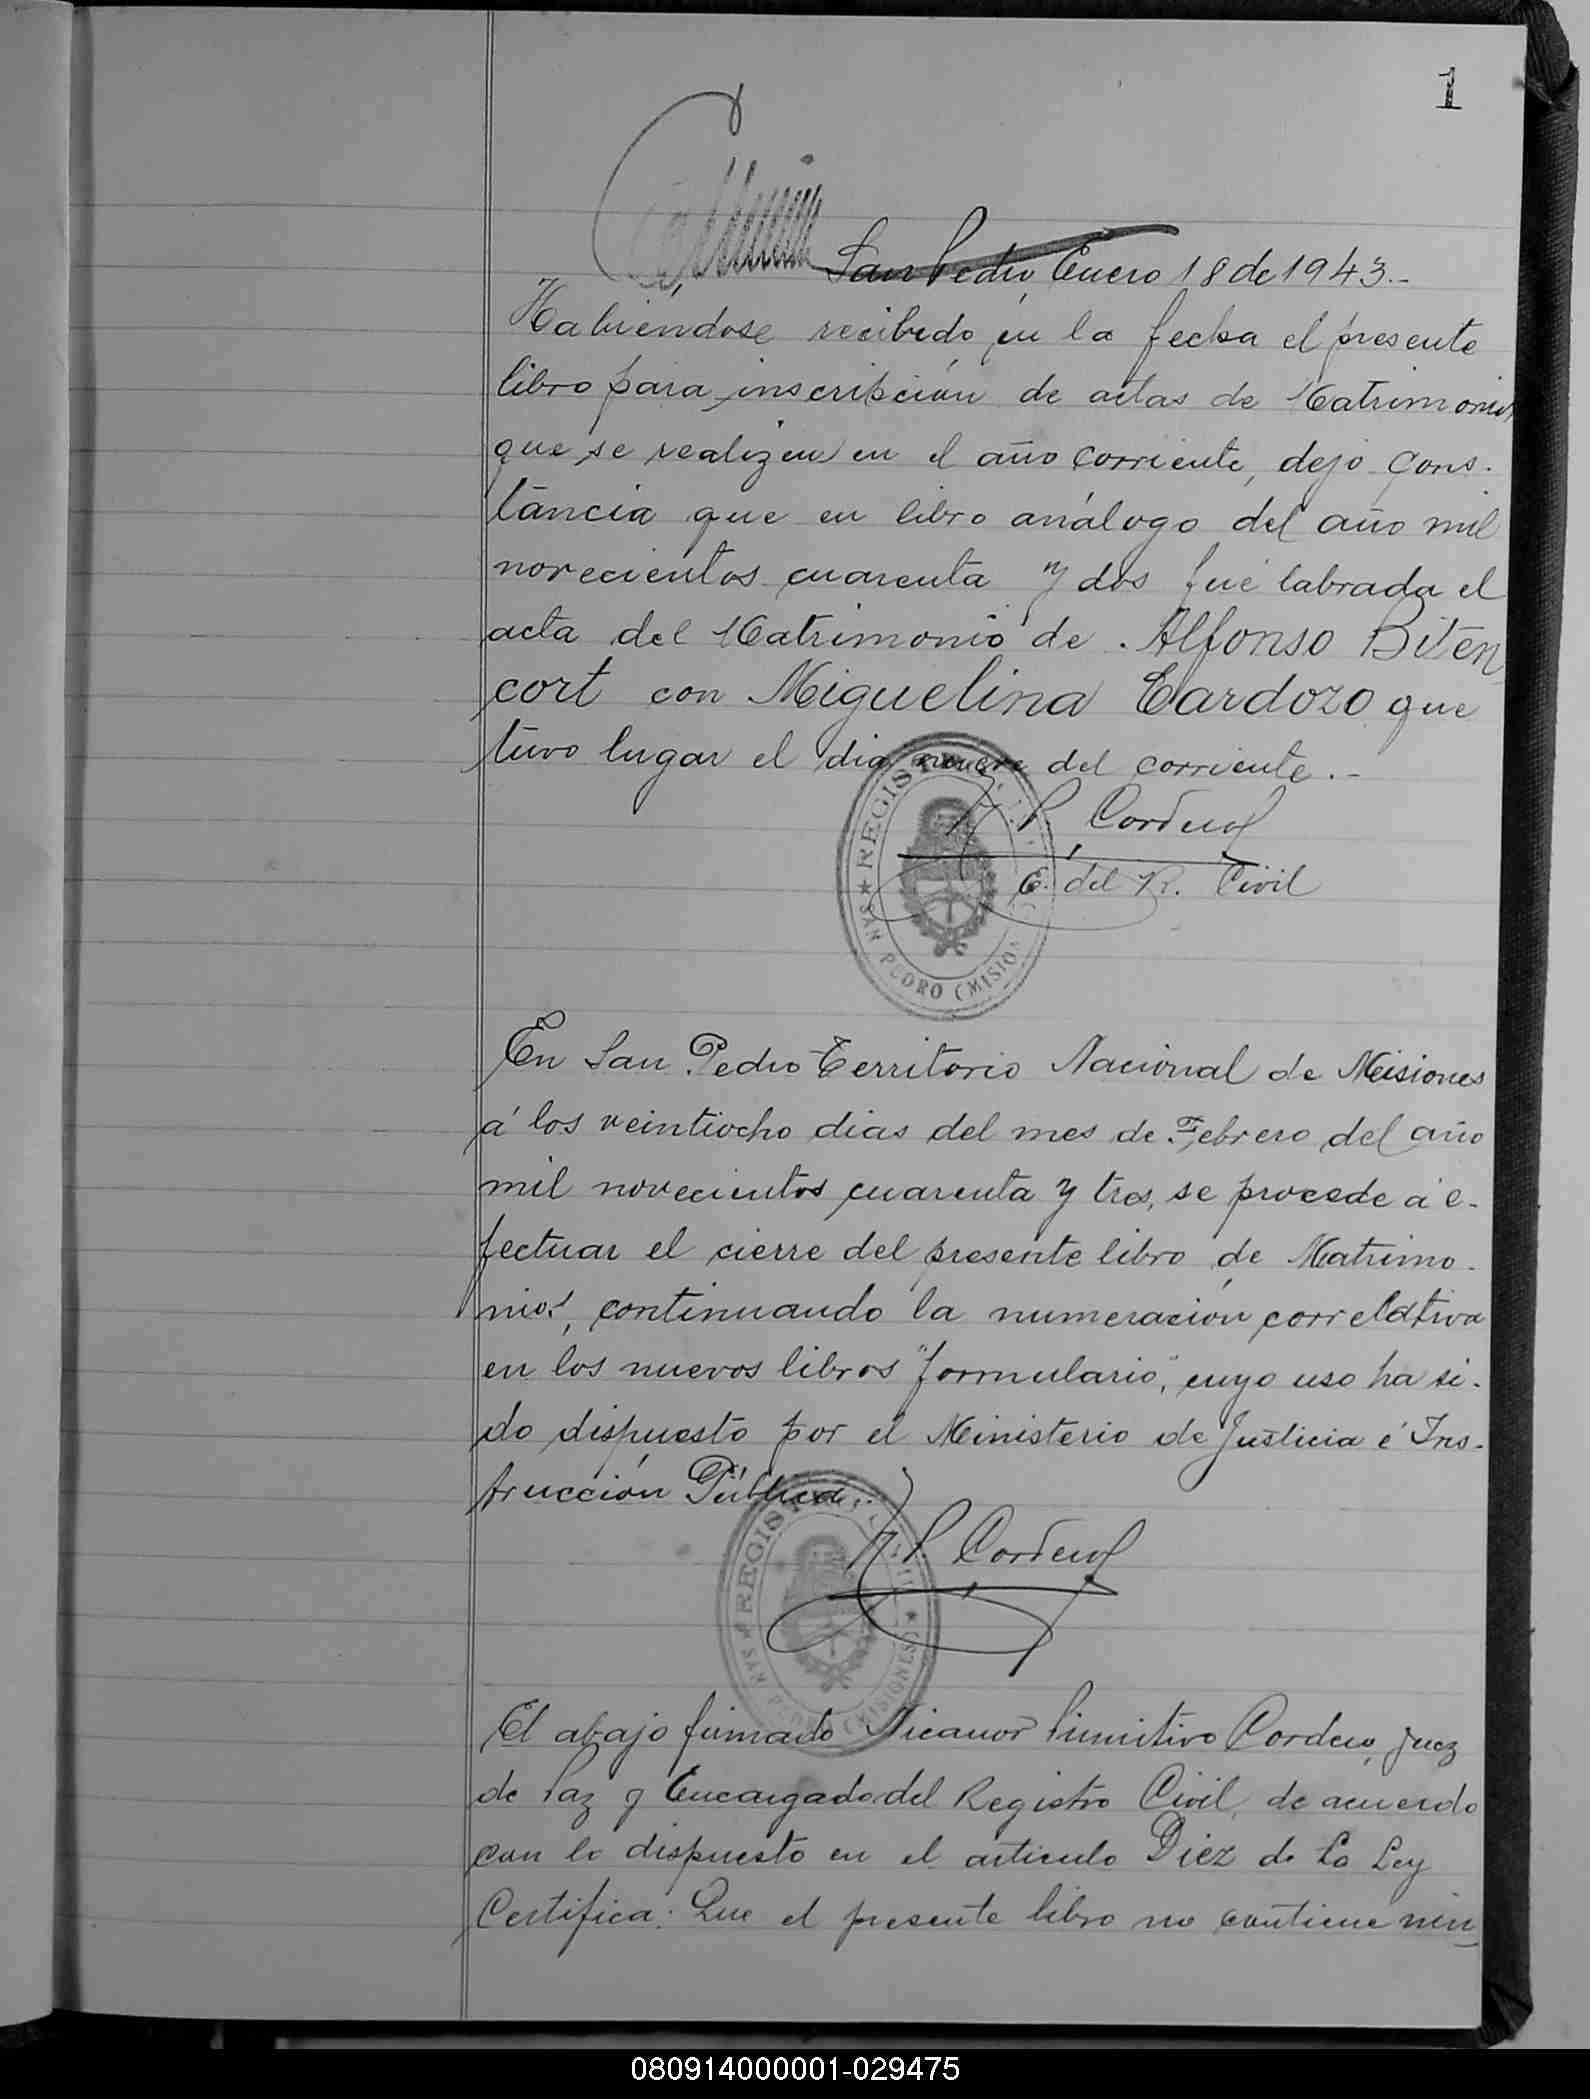 1
San Pedro, Enero 18 de 1943.-
Habiéndose recibido en la fecha el presente
libro para inscripción de actas de Matrimonios
que se realizen en el año corriente, dejo cons-
tancia que en libro análogo del año mil
novecientos cuarenta y dos fué labrada el
acta del Matrimonio de Alfonso Biten
cort con Miguelina Cardozo que
tuvo lugar el dia nueve del corriente.-
N. P. Cordero
E. del R. Civil
REGISTRO CIVIL
SAN PEDRO (MISIONES)
En San Pedro Territorio Nacional de Misiones
á los veintiocho dias del mes de Febrero del año
mil novecientos cuarenta y tres, se procede á e-
fectuar el cierre del presente libro de Matrimo-
nios, continuando la numeración correlativa
en los nuevos libros "formulario", cuyo uso ha si-
do dispuesto por el Ministerio de Justicia é Ins-
trucción Pública.-
N P Cordero
REGISTRO CIVIL
SAN PEDRO (MISIONES)
El abajo firmado Nicanor Primitivo Cordero, Juez
de Paz y Encargado del Registro Civil, de acuerdo
con lo dispuesto en el articulo Diez de la Ley
Certifica: Que el presente libro no contiene nin
080914000001-029475